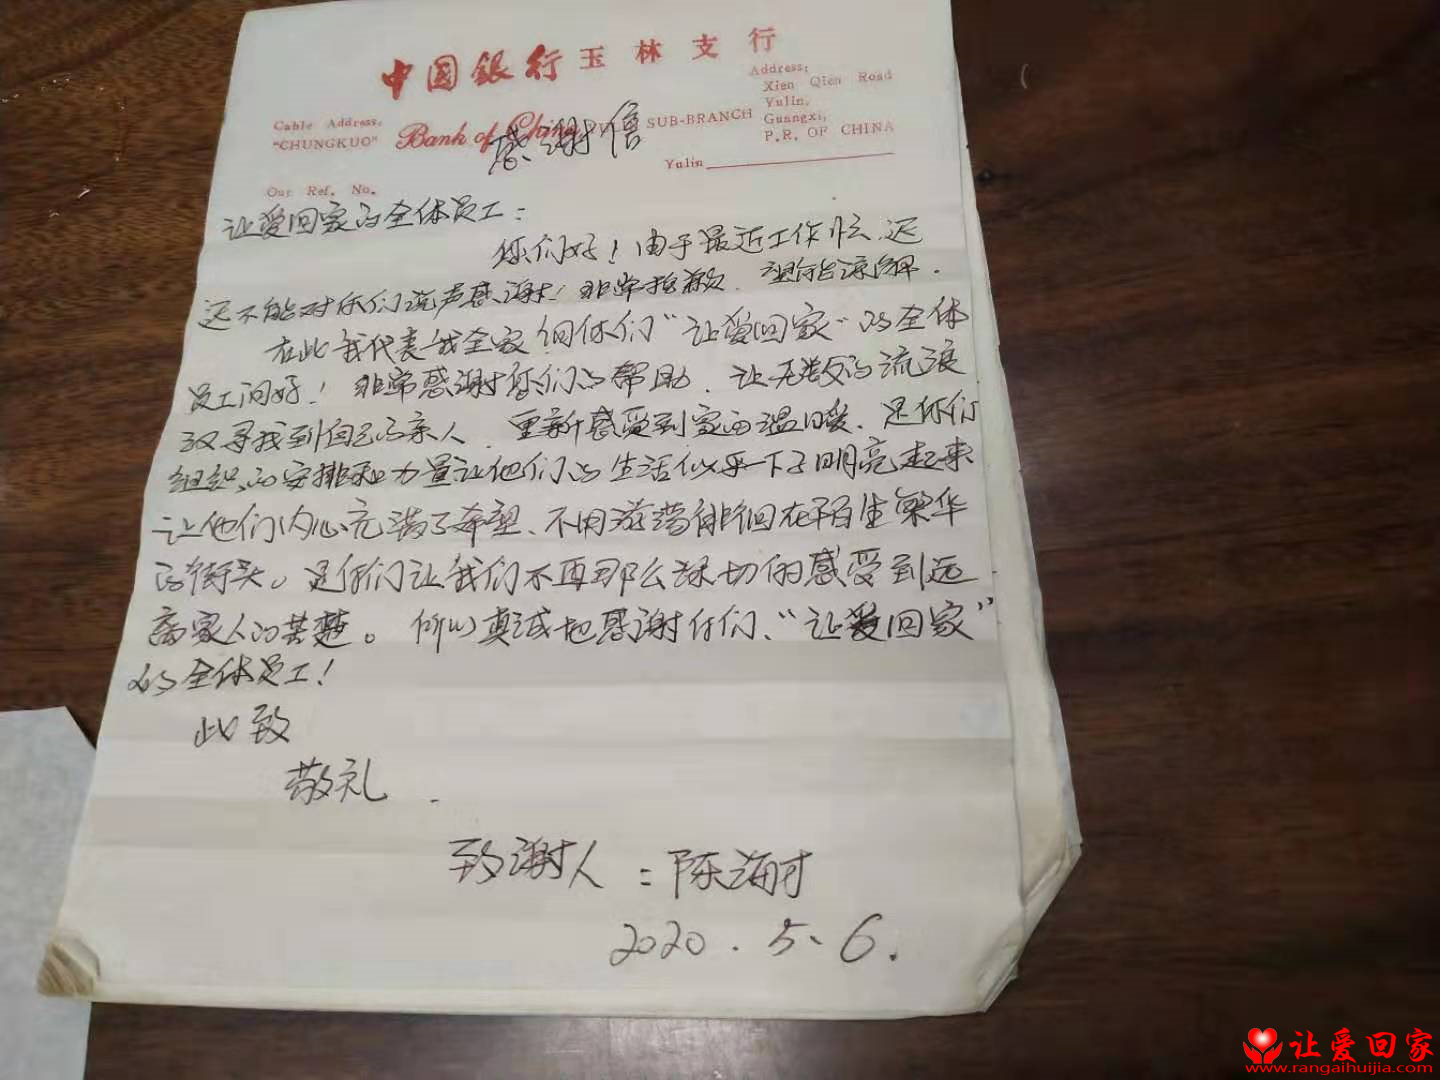 中國銀行玉林支行
Cable Address.
"CHUNGKUO"
Bank of China
SUB-BRANCH
Address;
Xien Qien Road
Yulin,
Guangxi,
P.R. OF CHINA
感谢信
Yulin
Our Ref. No.
让爱回家的全体员工：
你们好！由于最近工作忙，迟
迟不能对你们说声感谢！非常抱歉．望给台谅解．
在此我代表我全家向你们"让爱回家"的全体
员工问好！非常感谢您们的帮助．让无数的流浪
汉寻找到自己的亲人．重新感受到家的温暖．是你们
组织的安排和力量让他们的生活似乎一下子明亮起来
让他们内心充满了希望、不用游荡徘徊在陌生繁华
的街头。是你们让我们不再那么深切的感受到远
离家人的苦楚。所以真诚地感谢你们、"让爱回家"
的全体员工！
此致
敬礼．
致谢人：陈海
2020．5、6．
让爱回家
www.rangaihuijia.com